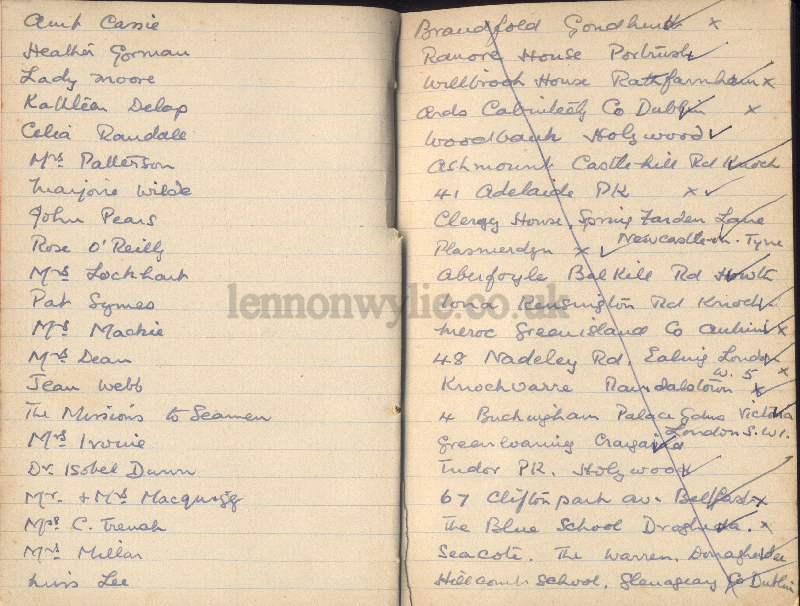 Aunt Cassie
Heather Gorman
Lady Moore
Kathleen Delap
Celia Randall
Mrs Patterson
Marjorie Wilde
John Pears
Rose O'Reilly
Mrs Lockhart
Pat Symes
Mrs Mackie
Mrs Dean
Jean Webb
The Missions to Seamen
Mrs Irvine
Dr. Isobel Dunn
Mr. + Mrs
Mrs C. Trench
Mrs Millar
Miss Lee
Brandfold Goudhurst x
Ranore House Portrush
Willbrook House Rathfarnham x
Ards Cabinteely Co Dublin x
Woodbank Holywood
Ashmount Castlehill Rd Knock
41 Adelaide PK x
Clergy House, Spring Garden Lane
Newcastle-on-Tyne
x
Aberfoyle Balkill Rd Howth
Iona Kensington Rd Knock
Meroc Greenisland Co Antrim x
48 Madeley Rd. Ealing London
W. 5 x
Randalstown x
4 Buckingham Palace Gdns Victoria
London S.W.1.
Craigavad
Tudor PK. Holywood
67 Cliftonpark Av. Belfast x
The Blue School Drogheda. x
Seacote. The Warren, Donaghadee
Hillcourt School, Glenageary Co Dublin
lennonwylie.co.uk